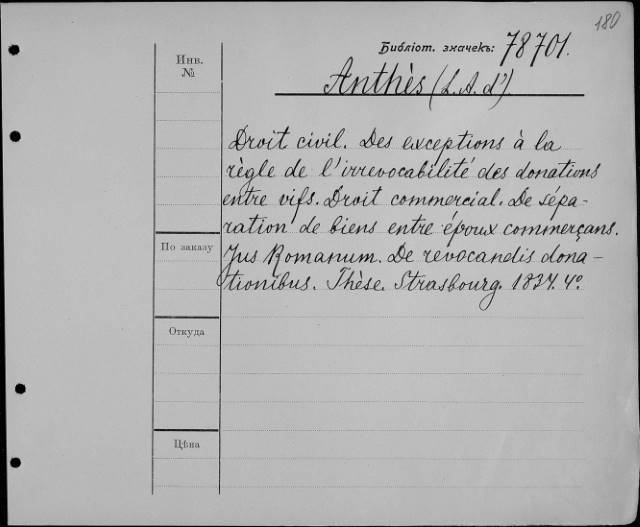 180
Библіот. значекъ: 78701.
Инв.
№
Anthès (L. A. d')
Droit civil. Des exceptions à la
règle de l'irrevocabilité des donations
entre vifs. Droit commercial. De sépa-
ration de biens entre époux commerçans.
По заказу
Jus Romanum. De revocandis dona-
tionibus. Thèse. Strasbourg. 1837. 4°.
Откуда
Цѣна